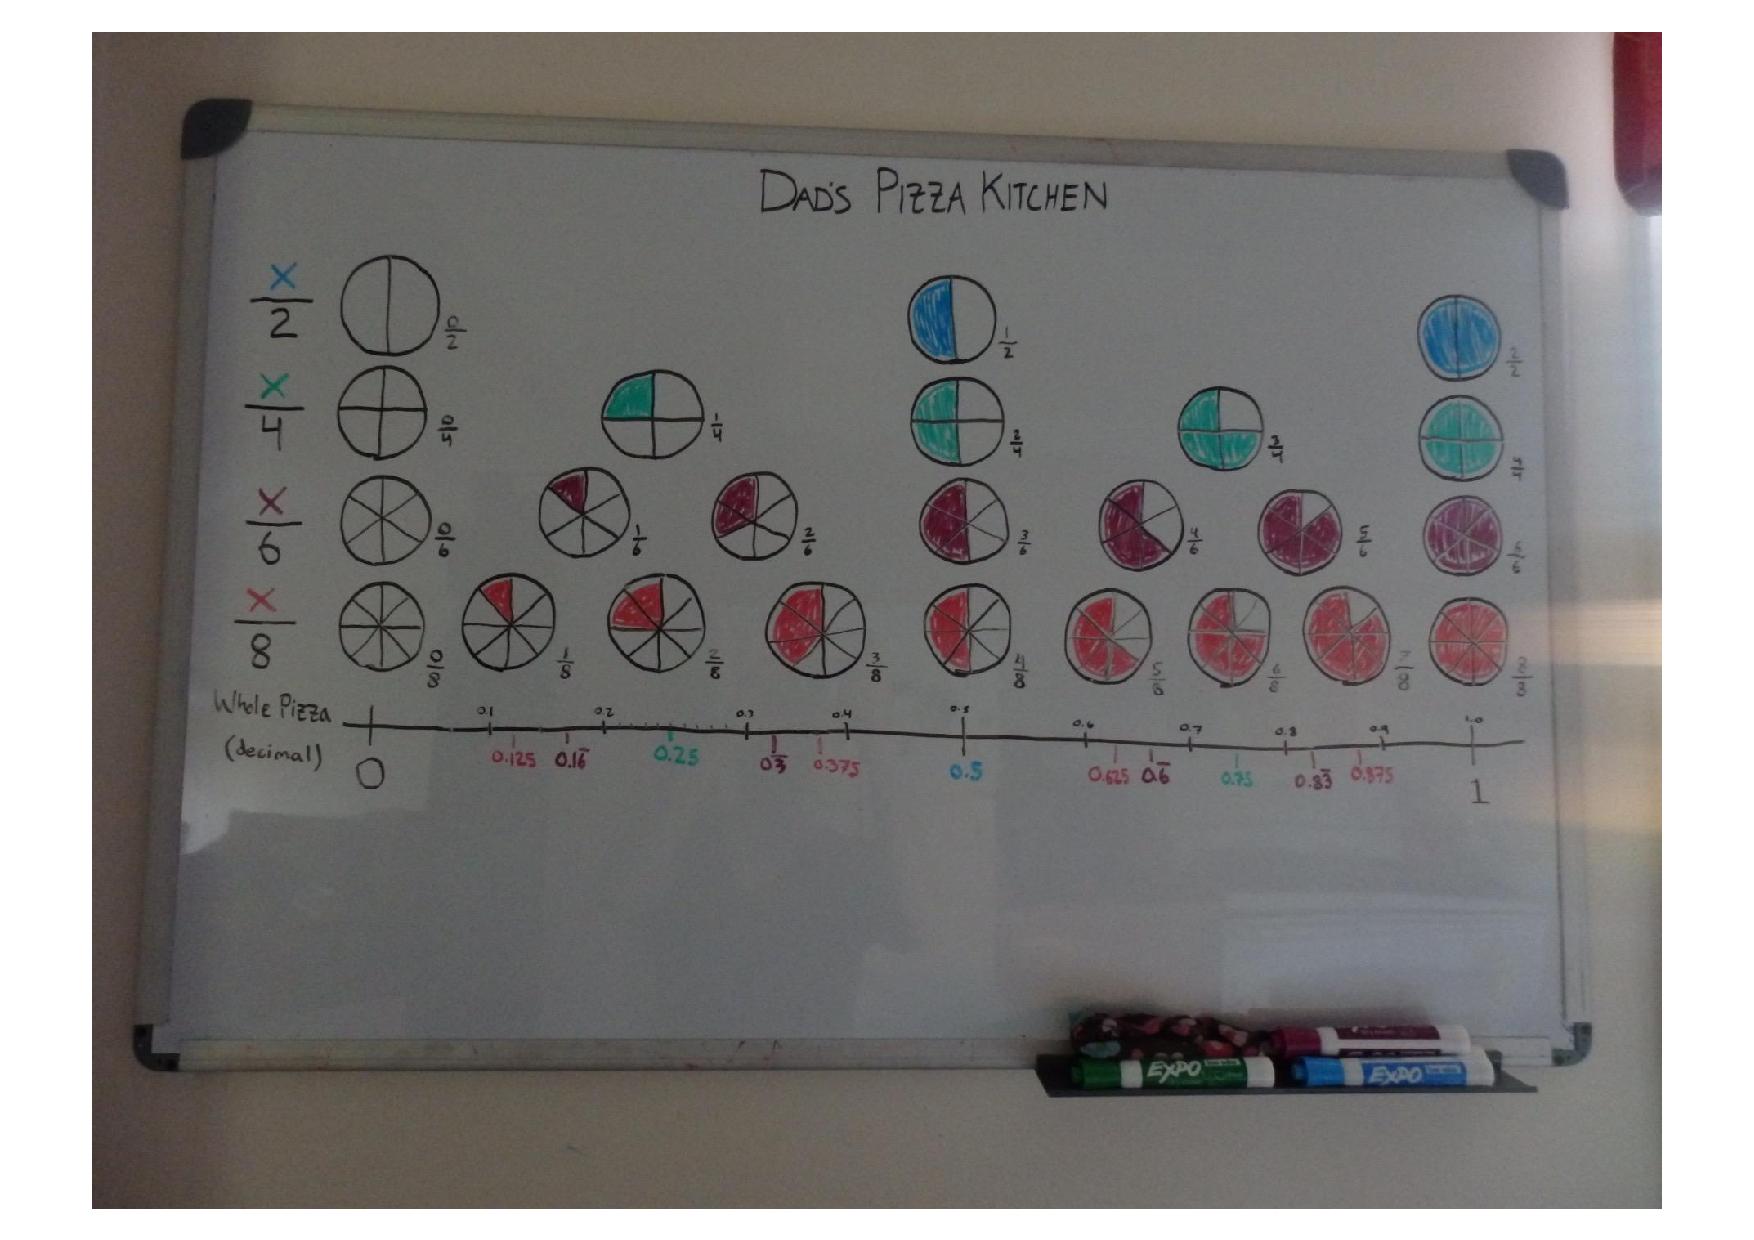 DAD'S PIZZA KITCHEN
x/2 0/2 1/2 2/2
x/4 0/4 1/4 2/4 3/4 4/4
x/6 0/6 1/6 2/6 3/6 4/6 5/6 6/6
x/8 0/8 1/8 2/8 3/8 4/8 5/8 6/8 7/8 8/8
Whole Pizza 0.1 0.2 0.3 0.4 0.5 0.6 0.7 0.8 0.9 1.0
(decimal) 0 0.125 0.16̅ 0.25 0.3̅ 0.375 0.5 0.625 0.6̅ 0.75 0.83̅ 0.875 1
EXPO EXPO